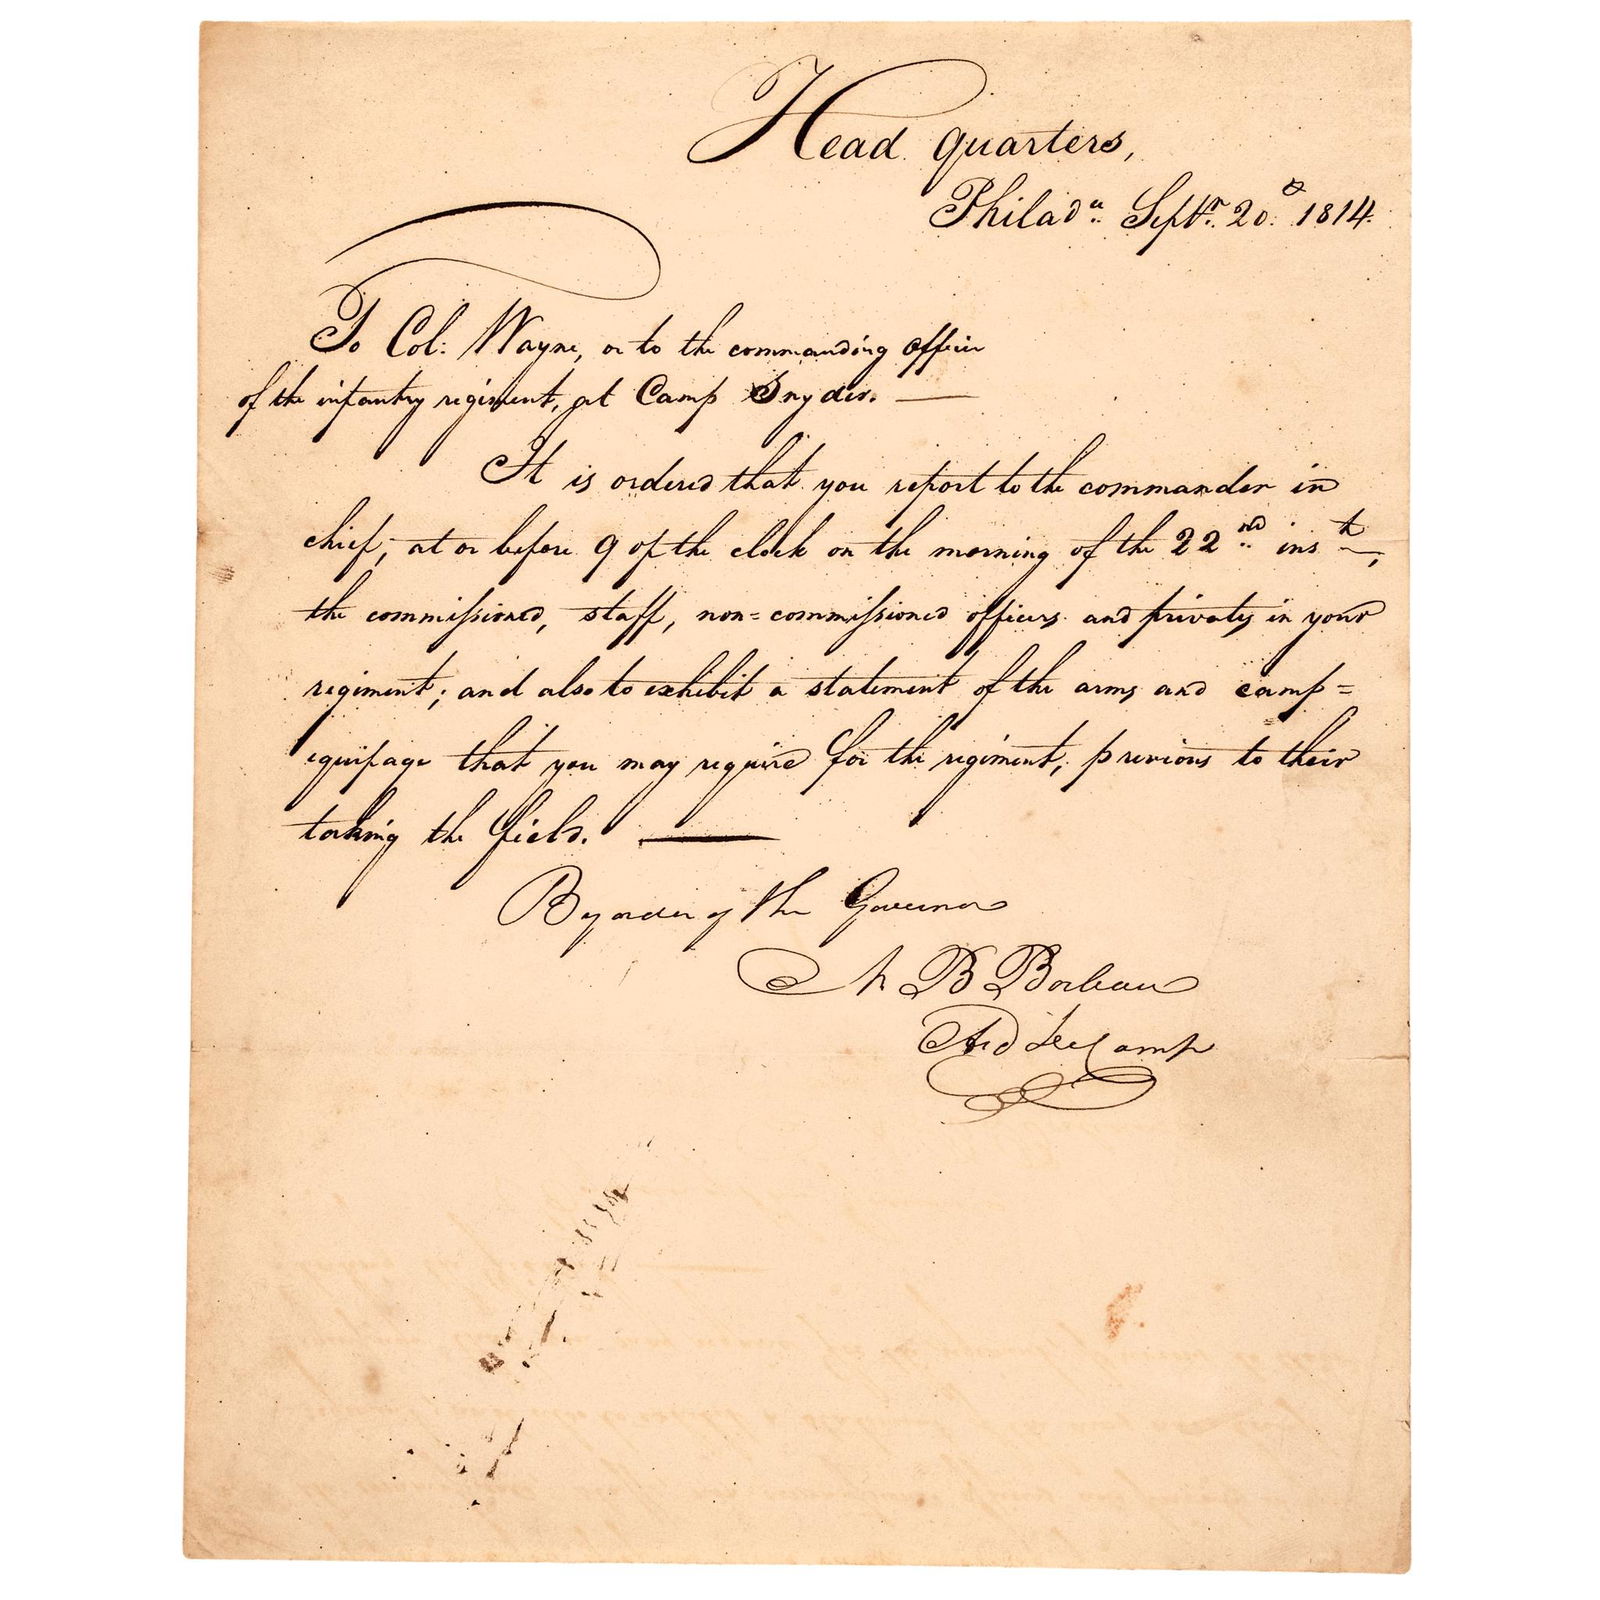 Head quarters,
Philada. Septr. 20. 1814.
To Col: Wayne, or to the commanding officer
of the infantry regiment, at Camp Snyder. —
It is ordered that you report to the commander in
chief; at or before 9 of the clock on the morning of the 22nd inst,
the commissioned, staff, non=commissioned officers and privates in your
regiment; and also to exhibit a statement of the arms and camp=
equipage that you may require for the regiment, previous to their
taking the field. —
By order of the Governor
N B Boileau
Aid De Camp